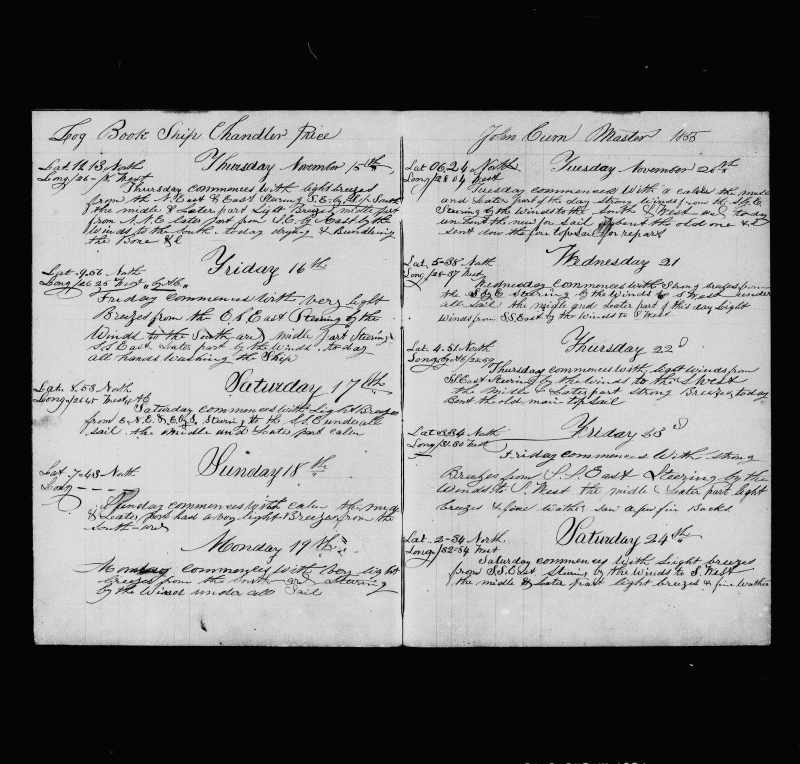 Log Book Ship Chandler Price
Lat 11 13 North Thursday November 15th
Long 26-18 West
Thursday commences with light breezes
from the N. East & East Stearing S.E. by S 1/2 South
& the midle & Later part Light Breezes midle part
from N.N.E Later part from S.E. by East by the
Winds to the South. today drying & Bundleing
the Bone &c
Lat 9.56 North Friday 16th
Long 26 25 West by AC
Friday commences with very light
Breezes from the East Stearing by the
Winds to the South-ard midle Part Stearing
S.S East Later part by the Winds. to day
all hands Washing the Ship
Lat. 8.58 North Saturday 17th
Long West
Saturday commences with Light Breezes
from E.N.E. & Stearing to the S.S.E under all
sail the midle and Later part calm
Lat 7-48 North Sunday 18th
Long - - -
Sunday commences with calm the midle
& Later part had a very light Breezes from the
South-ard
Monday 19th
Monday commences with very light
breezes from the South ard Stearing
by the Winds under all Sail
John Curn Master 1855
Lat 06.24 North Tuesday November 20th
Long 28 04 West
Tuesday commences with a calm the midle
and Later part of the day strong winds from the
Stearing by the Winds to the South & West ard today
unbent the new for Sail & bent the old one &
sent down the fore top sail for repars
Lat 5-38 North Wednesday 21
Long 28-37 West
Wednesday commences with Strong breezes from
the Stearing by the Winds to S West under
all Sail the midle and Later part of this day Light
winds from S.S.East by the Winds to S West
Lat 4-51 North Thursday 22d
Long by
Thursday commences with light Winds from
S.East Stearing by the Winds to the S West
the midle & Later part strong Breezes, today
Bent the old main top sail
Lat 3.34 North Friday 23d
Long 31.30 West
Friday commences With strong
Breezes from S.S. East Steering by the
Winds to S. West the midle & Later part light
breezes & fine wather saw a few fin Backs
Lat. 2-54 North Saturday 24th
Long 32-54 West
Saturday commences with Light breezes
from S.S. East Stearing by the Winds to S. West
the midle & Later part light breezes & fine wather